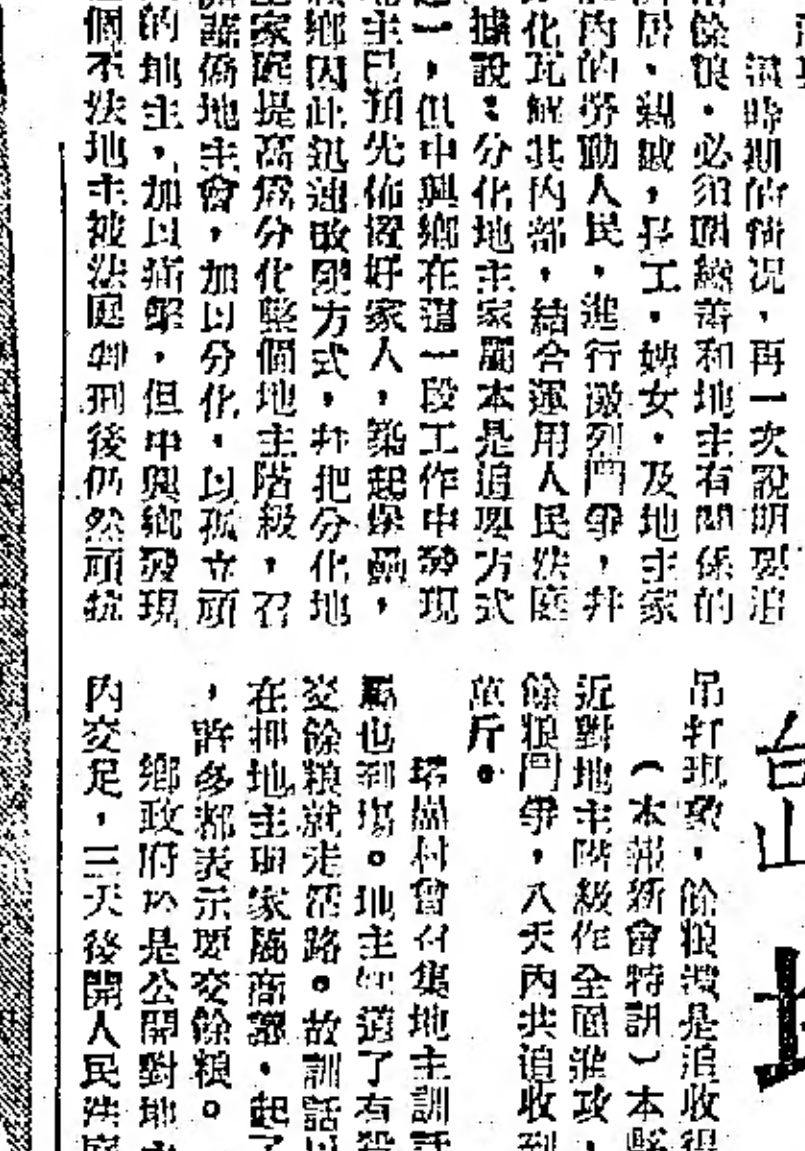 這時期的情況，再一次說明要追
餘粮，必須聯繫着和地主有關係的
居、親戚，長工，婢女，及地主家
內的勞動人民，進行激烈鬥爭，并
化瓦解其內部，結合運用人民法庭
據說：分化地主家屬本是追要方式
一，但中興鄉在這一段工作中發現
主已預先佈置好家人，築起堡壘，
鄉因此迅速改變方式，并把分化地
家庭提高爲分化整個地主階級，召
僑地主會，加以分化，以孤立頑
的地主，加以痛擊，但中興鄉發現
個不法地主被法庭判刑後仍然頑抗
台山
吊打現象，餘粮還是追收得
（本報新會特訊）本縣
近對地主階級作全面進攻，
餘粮鬥爭，八天內共追收到
萬斤。
村曾召集地主訓話
屬也到塲。地主知道了有殺
交餘粮就走活路。故訓話以
在押地主與家屬商議，起了
，許多都表示要交餘粮。
鄉政府於是公開對地主
內交足，三天後開人民法庭